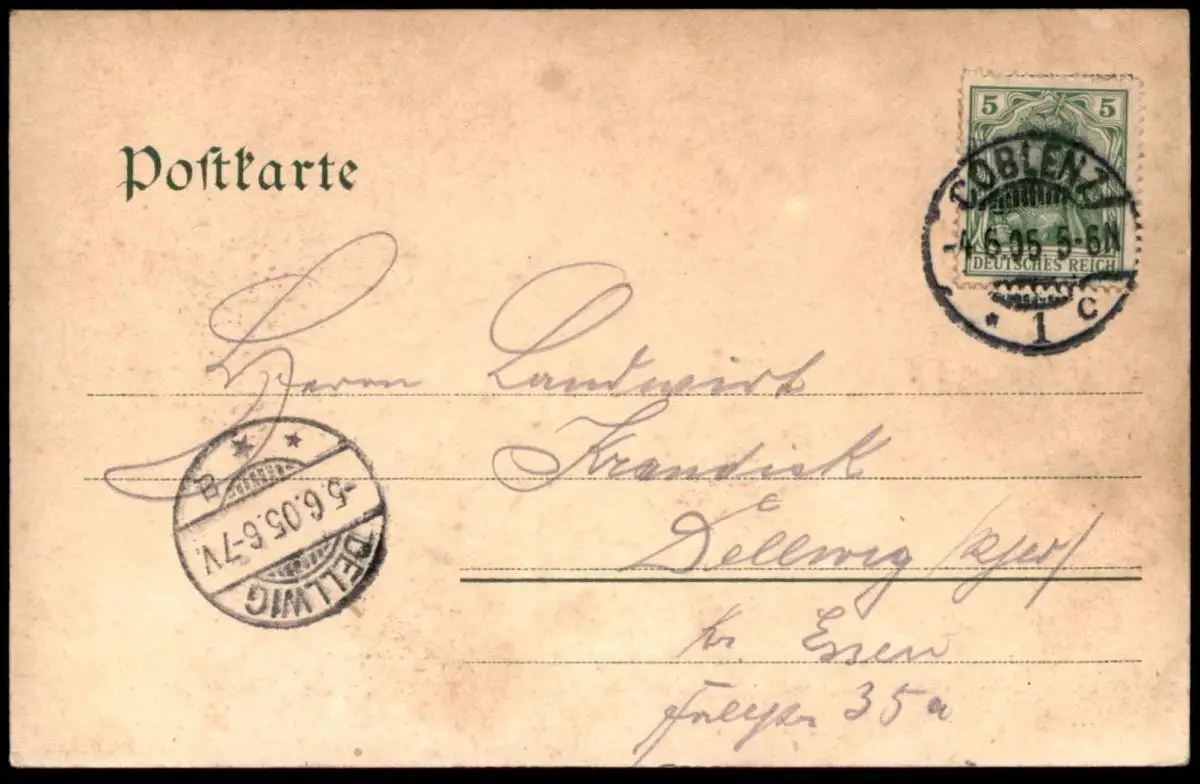 Postkarte
5 5
DEUTSCHES REICH
COBLENZ
-4.6.05 5-6N
* 1 c
Herrn Landwirt
Krandiek
Dellwig
kr Essen
35 a
* *
B
-5.6.05.6-7V.
DELLWIG